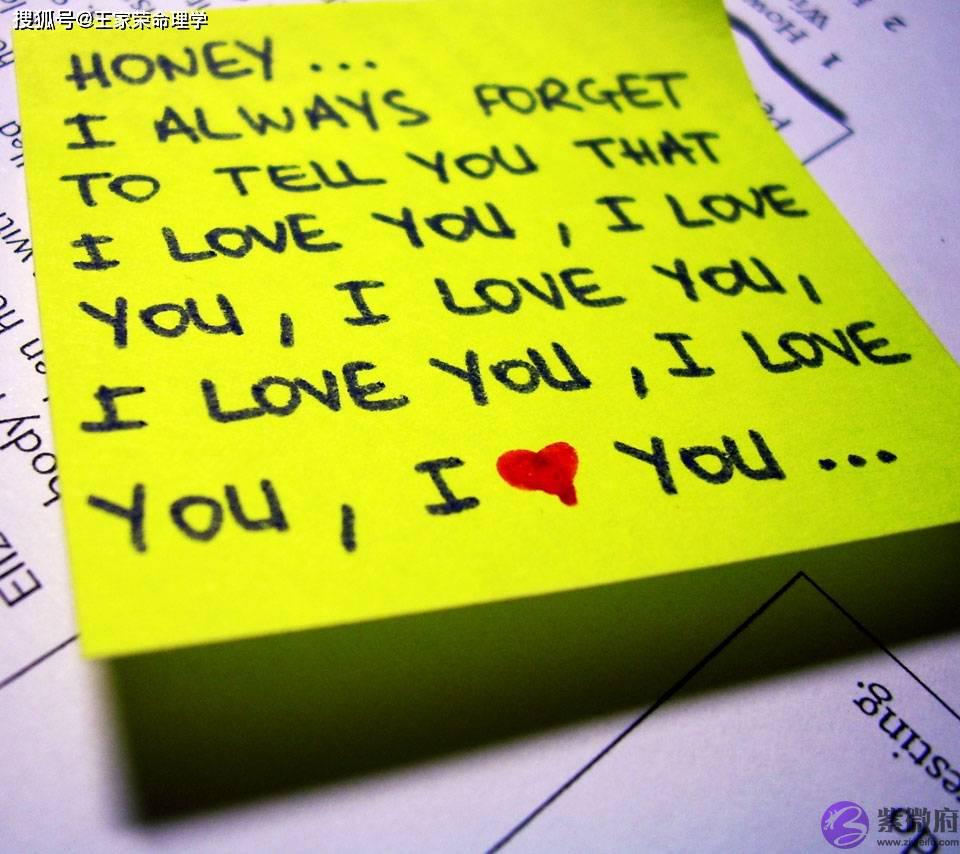 搜狐号@王家荣命理学
HONEY...
I ALWAYS FORGET
TO TELL YOU THAT
I LOVE YOU, I LOVE
YOU, I LOVE YOU,
I LOVE YOU, I LOVE
YOU, I ❤ YOU...
How
1
2
body
Eliz
esting.
紫微府